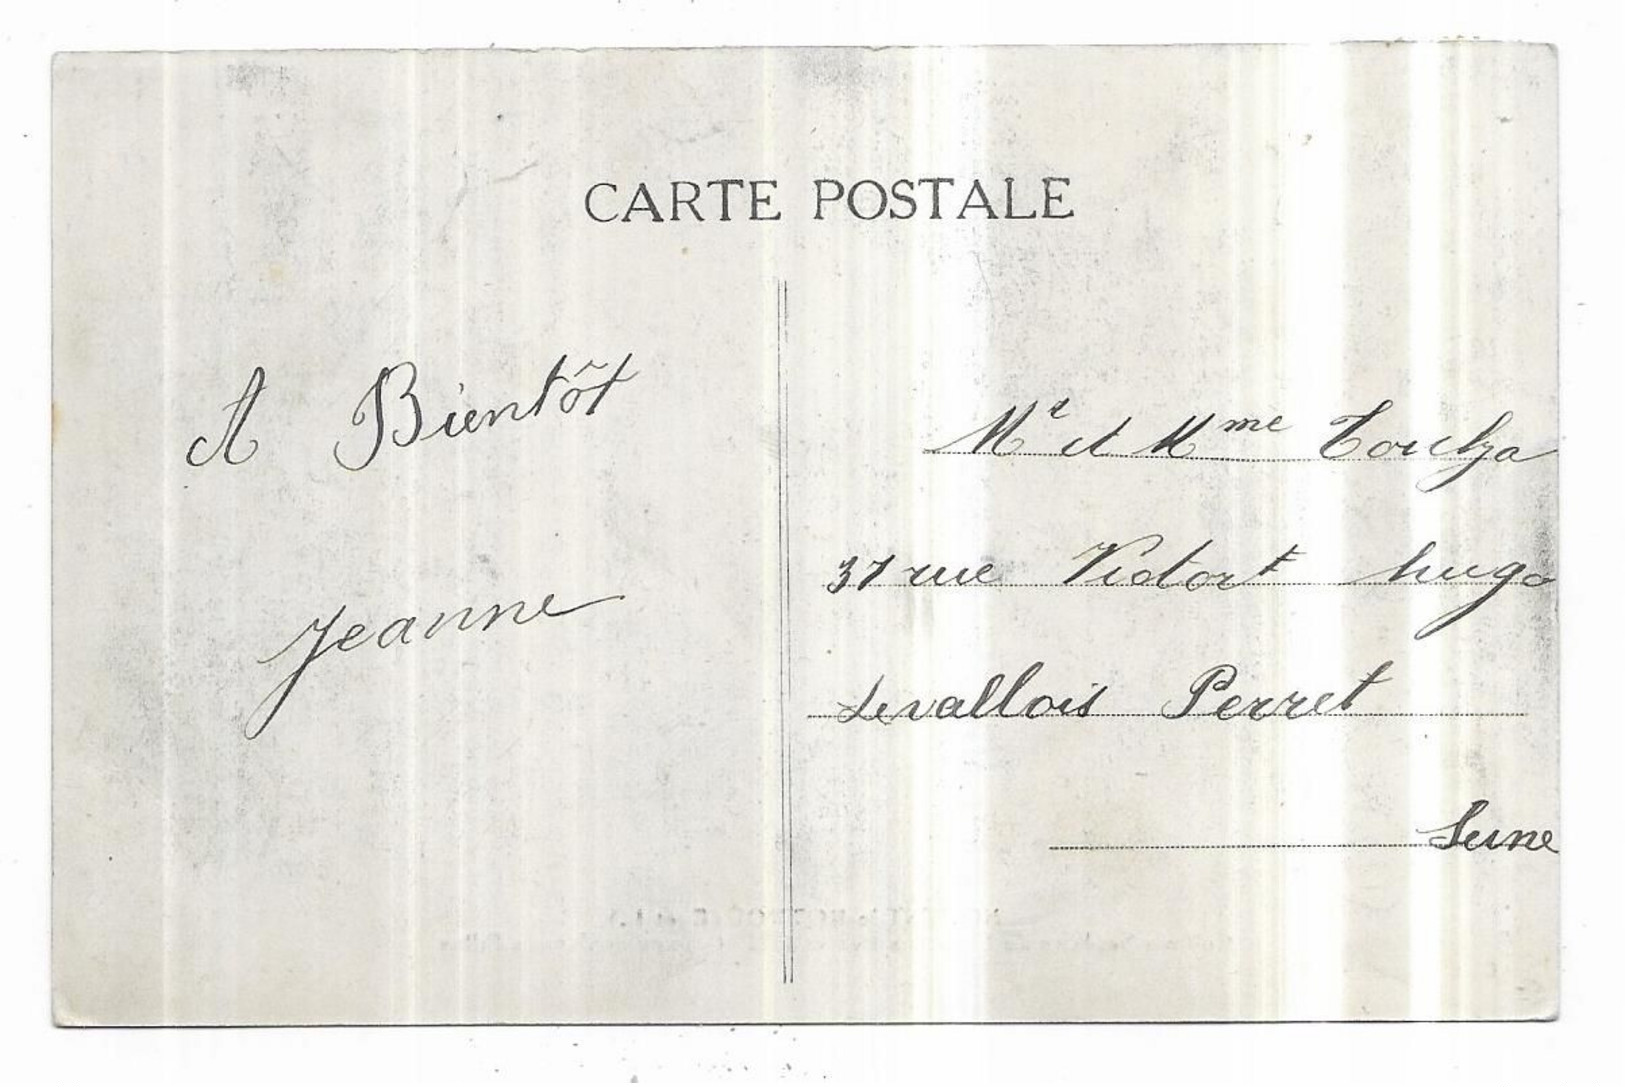 CARTE POSTALE
A Bientôt
Jeanne
Mr et Mme
37 rue Victort hugo
Levallois Perret
Seine